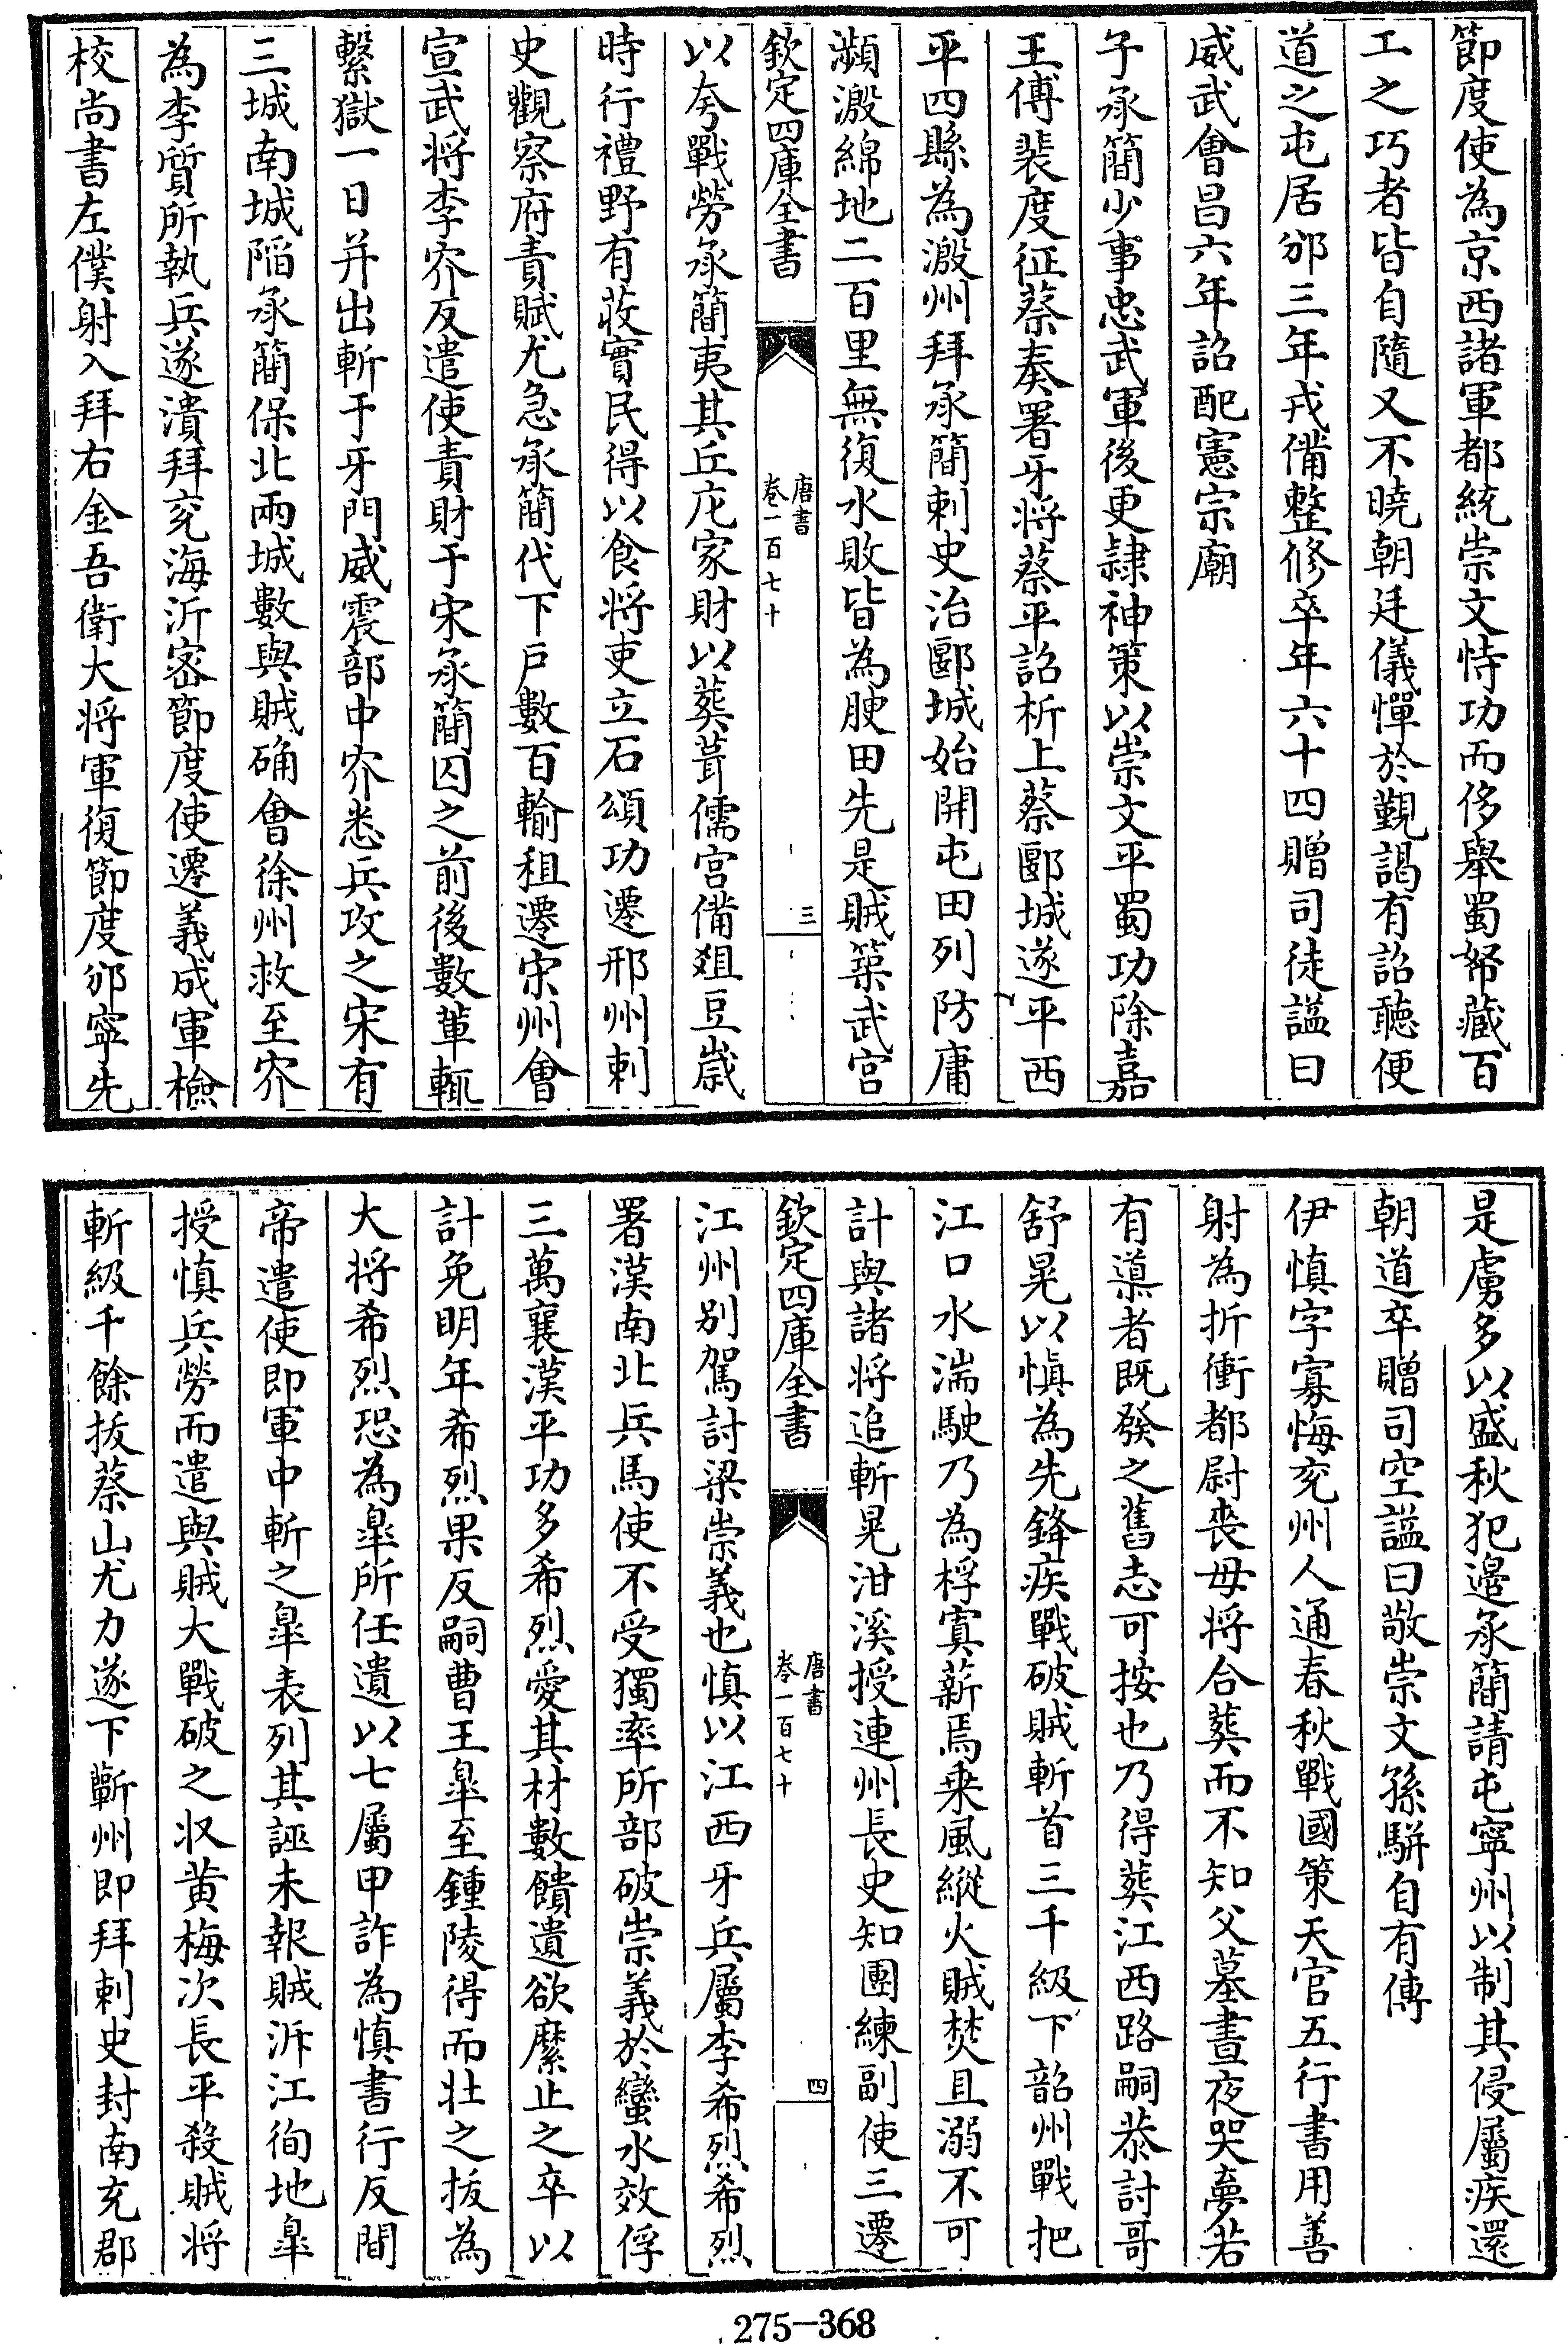 節度使為京西諸軍都統崇文恃功而侈舉蜀帑藏百
工之巧者皆自隨又不曉朝廷儀憚於覲謁有詔聽便
道之屯居邠三年戎備整修卒年六十四贈司徒諡曰
威武會昌六年詔配憲宗廟
子承簡少事忠武軍後更隷神策以崇文平蜀功除嘉
王傅裴度征蔡奏署牙將蔡平詔析上蔡郾城遂平西
平四縣為溵州拜承簡刺史治郾城始開屯田列防庸
瀕溵綿地二百里無復水敗皆為腴田先是賊築武宫
欽定四庫全書
唐書
卷一百七十
三
以夸戰勞承簡夷其丘庀家財以葬葺儒宫備爼豆嵗
時行禮野有莜實民得以食將吏立石頌功遷邢州刺
史觀察府責賦尤急承簡代下戶數百輸租遷宋州會
宣武將李㝏反遣使責財于宋承簡囚之前後數輩輒
繫獄一日并出斬于牙門威震部中㝏悉兵攻之宋有
三城南城陷承簡保北兩城數與賊确會徐州救至㝏
為李質所執兵遂潰拜兖海沂宻節度使遷義成軍檢
校尚書左僕射入拜右金吾衛大將軍復節度邠寧先
是虜多以盛秋犯邊承簡請屯寧州以制其侵屬疾還
朝道卒贈司空諡曰敬崇文孫駢自有傳
伊慎字寡悔兖州人通春秋戰國策天官五行書用善
射為折衝都尉喪母將合葬而不知父墓晝夜哭夢若
有導者既發之舊志可按也乃得葬江西路嗣恭討哥
舒晃以慎為先鋒疾戰破賊斬首三千級下韶州戰把
江口水湍駛乃為桴寘薪焉乗風縱火賊焚且溺不可
計與諸將追斬晃泔溪授連州長史知團練副使三遷
欽定四庫全書
唐書
卷一百七十
四
江州別駕討梁崇義也慎以江西牙兵屬李希烈希烈
署漢南北兵馬使不受獨率所部破崇義於蠻水效俘
三萬襄漢平功多希烈愛其材數饋遺欲縻止之卒以
計免明年希烈果反嗣曹王臯至鍾陵得而壮之拔為
大將希烈恐為臯所任遺以七屬甲詐為慎書行反間
帝遣使即軍中斬之臯表列其誣未報賊泝江徇地臯
授慎兵勞而遣與賊大戰破之収黄梅次長平殺賊將
斬級千餘拔蔡山尤力遂下蘄州即拜刺史封南充郡
275-368